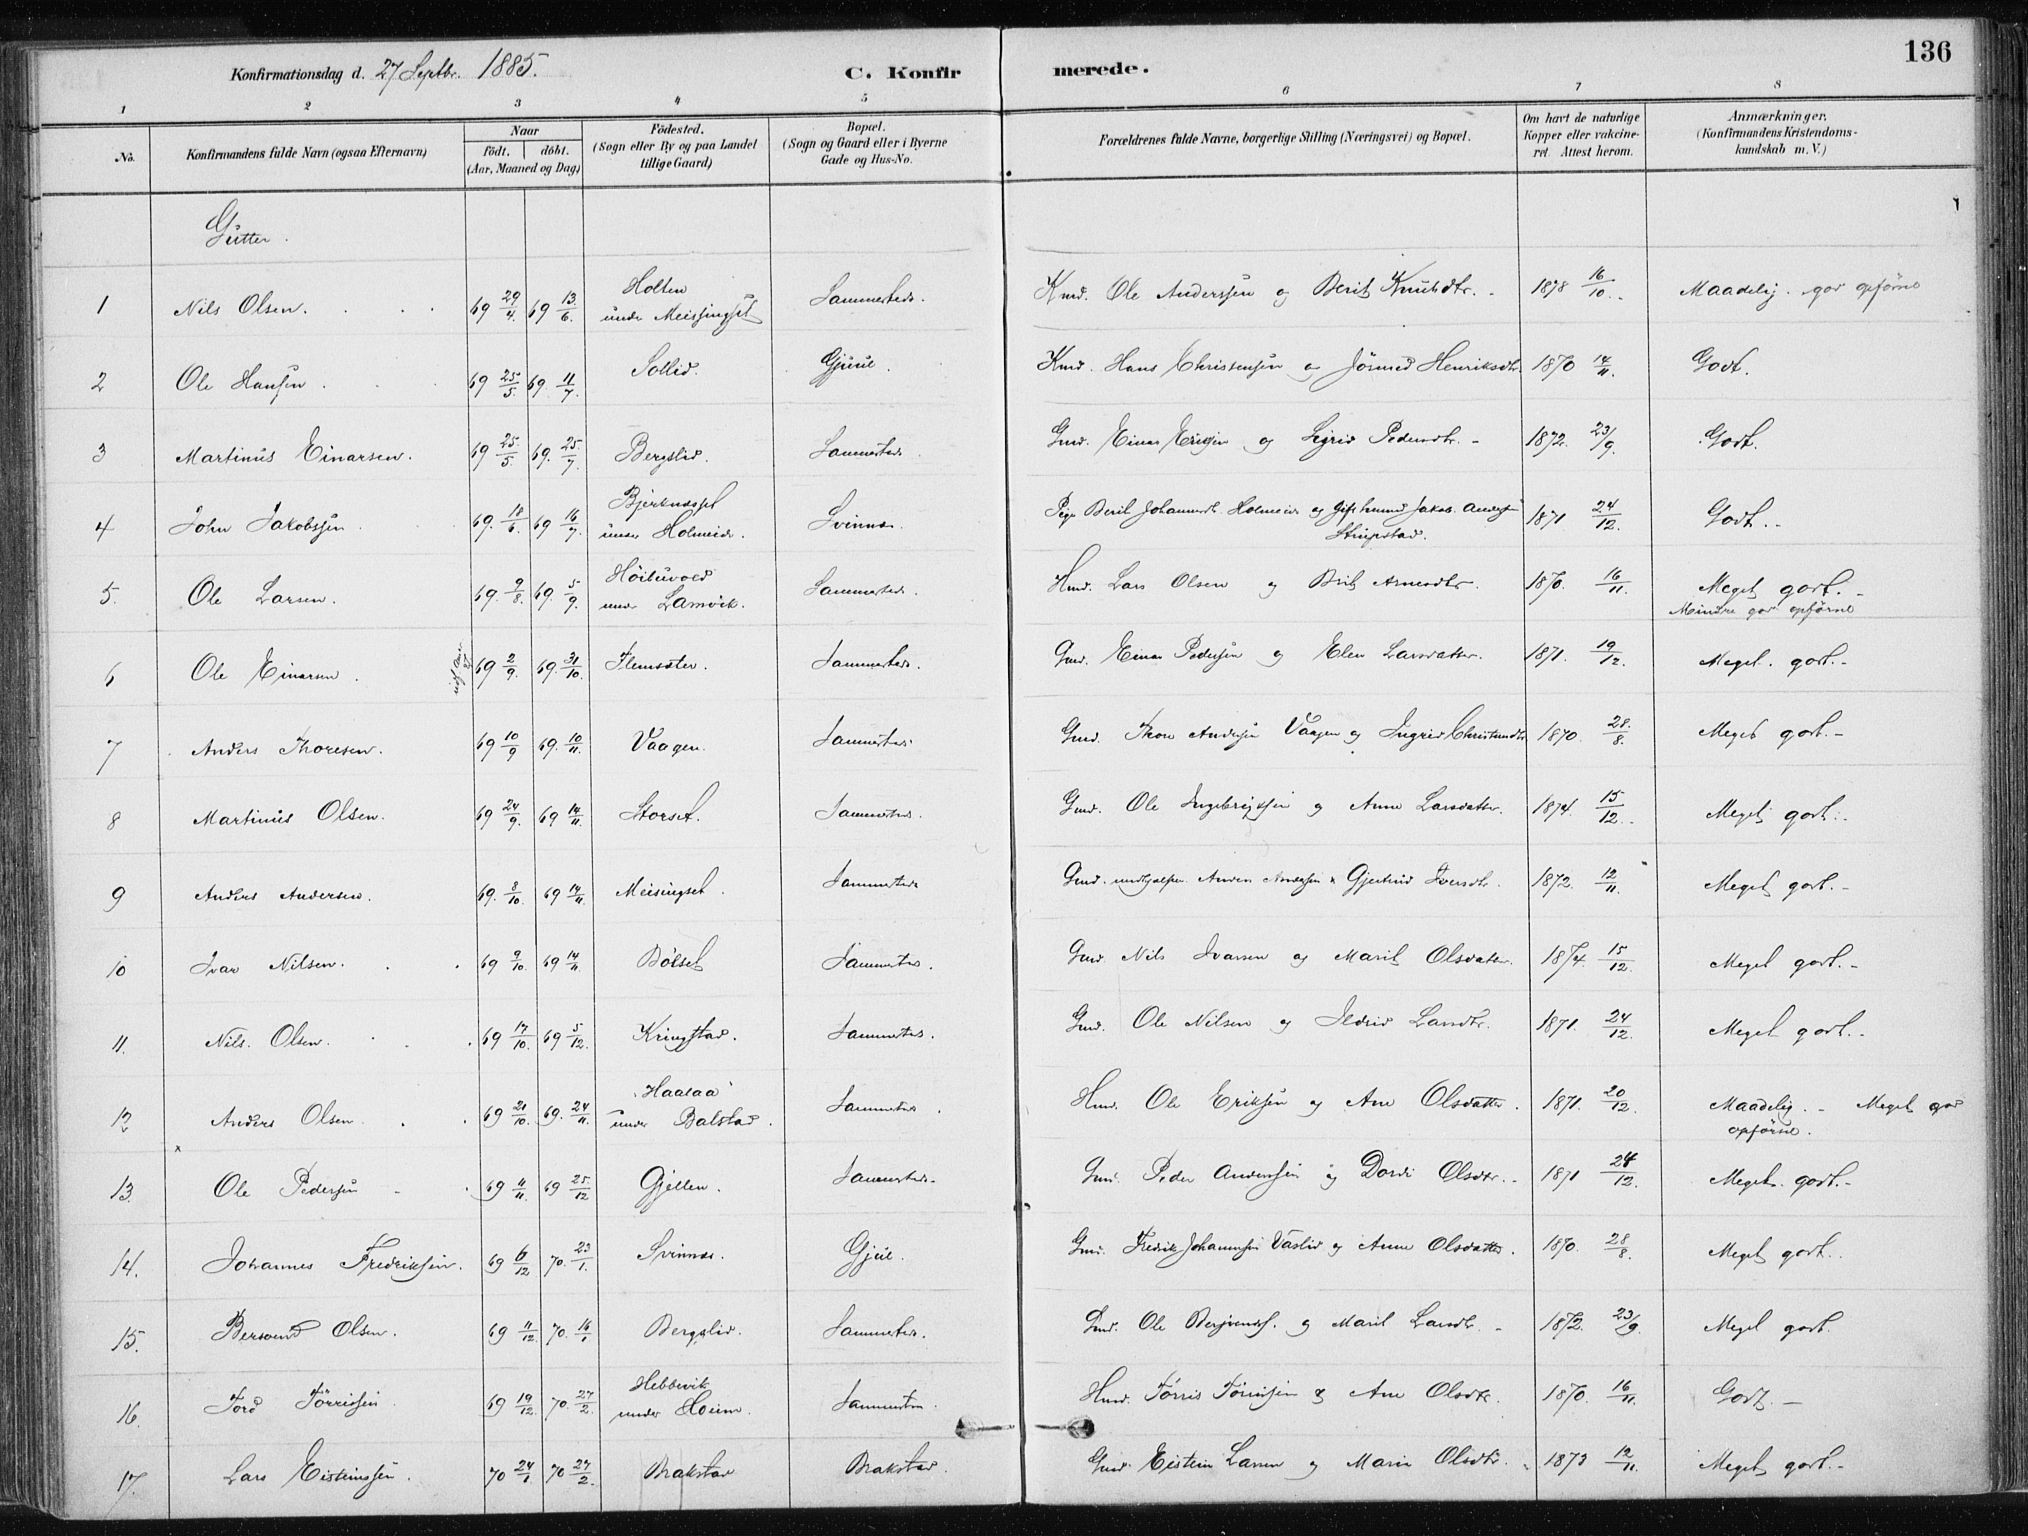 136
Konfirmationsdag d. 27 Septbr. 1885.
C. Konfirmerede.
1 2 3 4 5 6 7 8
No. Konfirmandens fulde Navn (ogsaa Efternavn)
Naar födt. döbt. (Aar, Maaned og Dag)
Födested. (Sogn eller By og paa Landet tillige Gaard)
Bopæl. (Sogn og Gaard eller i Byerne Gade og Hus-No.
Forældrenes fulde Navne, borgerlige Stilling (Næringsvei) og Bopæl.
Om havt de naturlige Kopper eller vakcineret. Attest herom.
Anmærkninger. (Konfirmandens Kristendomskundskab m. V.)
Gutter.
1 Nils Olsen. 69 29/4. 69 13/6. Holten under Meissingset Sammesteds. Kmd. Ole Anderssen og Berit Knutsdtr. 1878 16/10. Maadelig. god opförsel
2 Ole Hansen. 69 25/5. 69. 11/7. Sollid. Gjuul. Kmd. Hans Christensen og Jörund Henriksdtr. 1870 14/11. Godt.
3 Martinus Einarsen. 69 25/5. 69. 25/7. Bergslid. Sammesteds. Gmd. Einar Ericsen og Sigrid Pedersdtr. 1872. 23/9. Godt.
4 John Jakobssen. 69. 18/6. 69 16/7. Bjerknesset under Holmeide. Svinnæs. Pige Berit Johannesdt. Holmeide og Gift mand Jakob Andersen Stupstad. 1871 24/12. Godt.
5. Ole Larsen. 69. 9/8. 69. 5/9. under Lamvik. Sammesteds. Hmd. Lars Olsen og Brit Arnesdtr. 1870. 16/11. Meget godt. Mindre god opförsel
6 Ole Einarsen. 69 2/9. 69. 31/10. Flemsæter. Sammesteds. Gmd. Einar Pedersen og Elen Larsdatter. 1871. 19/12. Meget godt.
7 Anders Thoresen. 69 10/9 69. 10/11. Vaagen. Sammesteds. Gmd. Thore Andersen Vaagen og Ingrid Christensdtr 1870. 28/8. Meget godt.
8 Martinus Olsen. 69 24/9. 69 14/11. Storset. Sammesteds. Gmd. Ole Ingebrigtsen og Anne Larsdatter. 1874. 15/12. Meget godt.
9 Anders Andersen. 69. 8/10. 69 14/11. Meisingset. Sammesteds Gmd. Anders Andersen & Gjertrud Iversdtr. 1872. 12/11. Meget godt.
10 Ivar Nilsen. 69 9/10. 69 14/11. Bölset Sammesteds. Gmd. Nils Ivarsen og Marit Olsdatter. 1874. 15/12. Meget godt.
11. Nils Olsen. 69 17/10. 69 5/12. Kringstad. Sammesteds. Gmd. Ole Nilsen og Ildrid Larsdtr. 1871. 24/12. Meget godt.
12 Anders Olsen. 69 21/10. 69. 24/11. Haalaa under Balstad. Sammesteds. Hmd. Ole Eriksen og Ane Olsdatter. 1871. 20/12. Maadelig. Meget god opförsel.
13. Ole Pedersen 69 11/11. 69 25/12 Gjellen. Sammesteds. Gmd. Peder Anderssen og Dordi Olsdtr. 1871 24/12. Meget godt.
14. Johannes Fredriksen. 69 6/12 70. 23/1. Svinnæs. Gjul. Gmd. Fredrik Johannessen Vaslid og Anne Olsdatter. 1870. 28/8. Meget godt.
15. Bersvend Olsen. 69 11/12. 70. 16/1 Bergslid. Sammesteds. Gmd. Ole Bersvends. og Marit Larsdtr. 1872. 23/9. Meget godt.
16. Tord Törrissen 69 19/12. 70. 27/2. Hebbevik under Soeim Sammesteds. Hmd. Törris Törrissen & Ane Olsdtr. 1870. 16/11. Godt.
17. Lars Eisteinssen. 70 24/1. 70 27/2. Brakstad Brakstad. Gmd. Eistein Larsen og Marie Olsdtr. 1873 12/11. Meget godt.